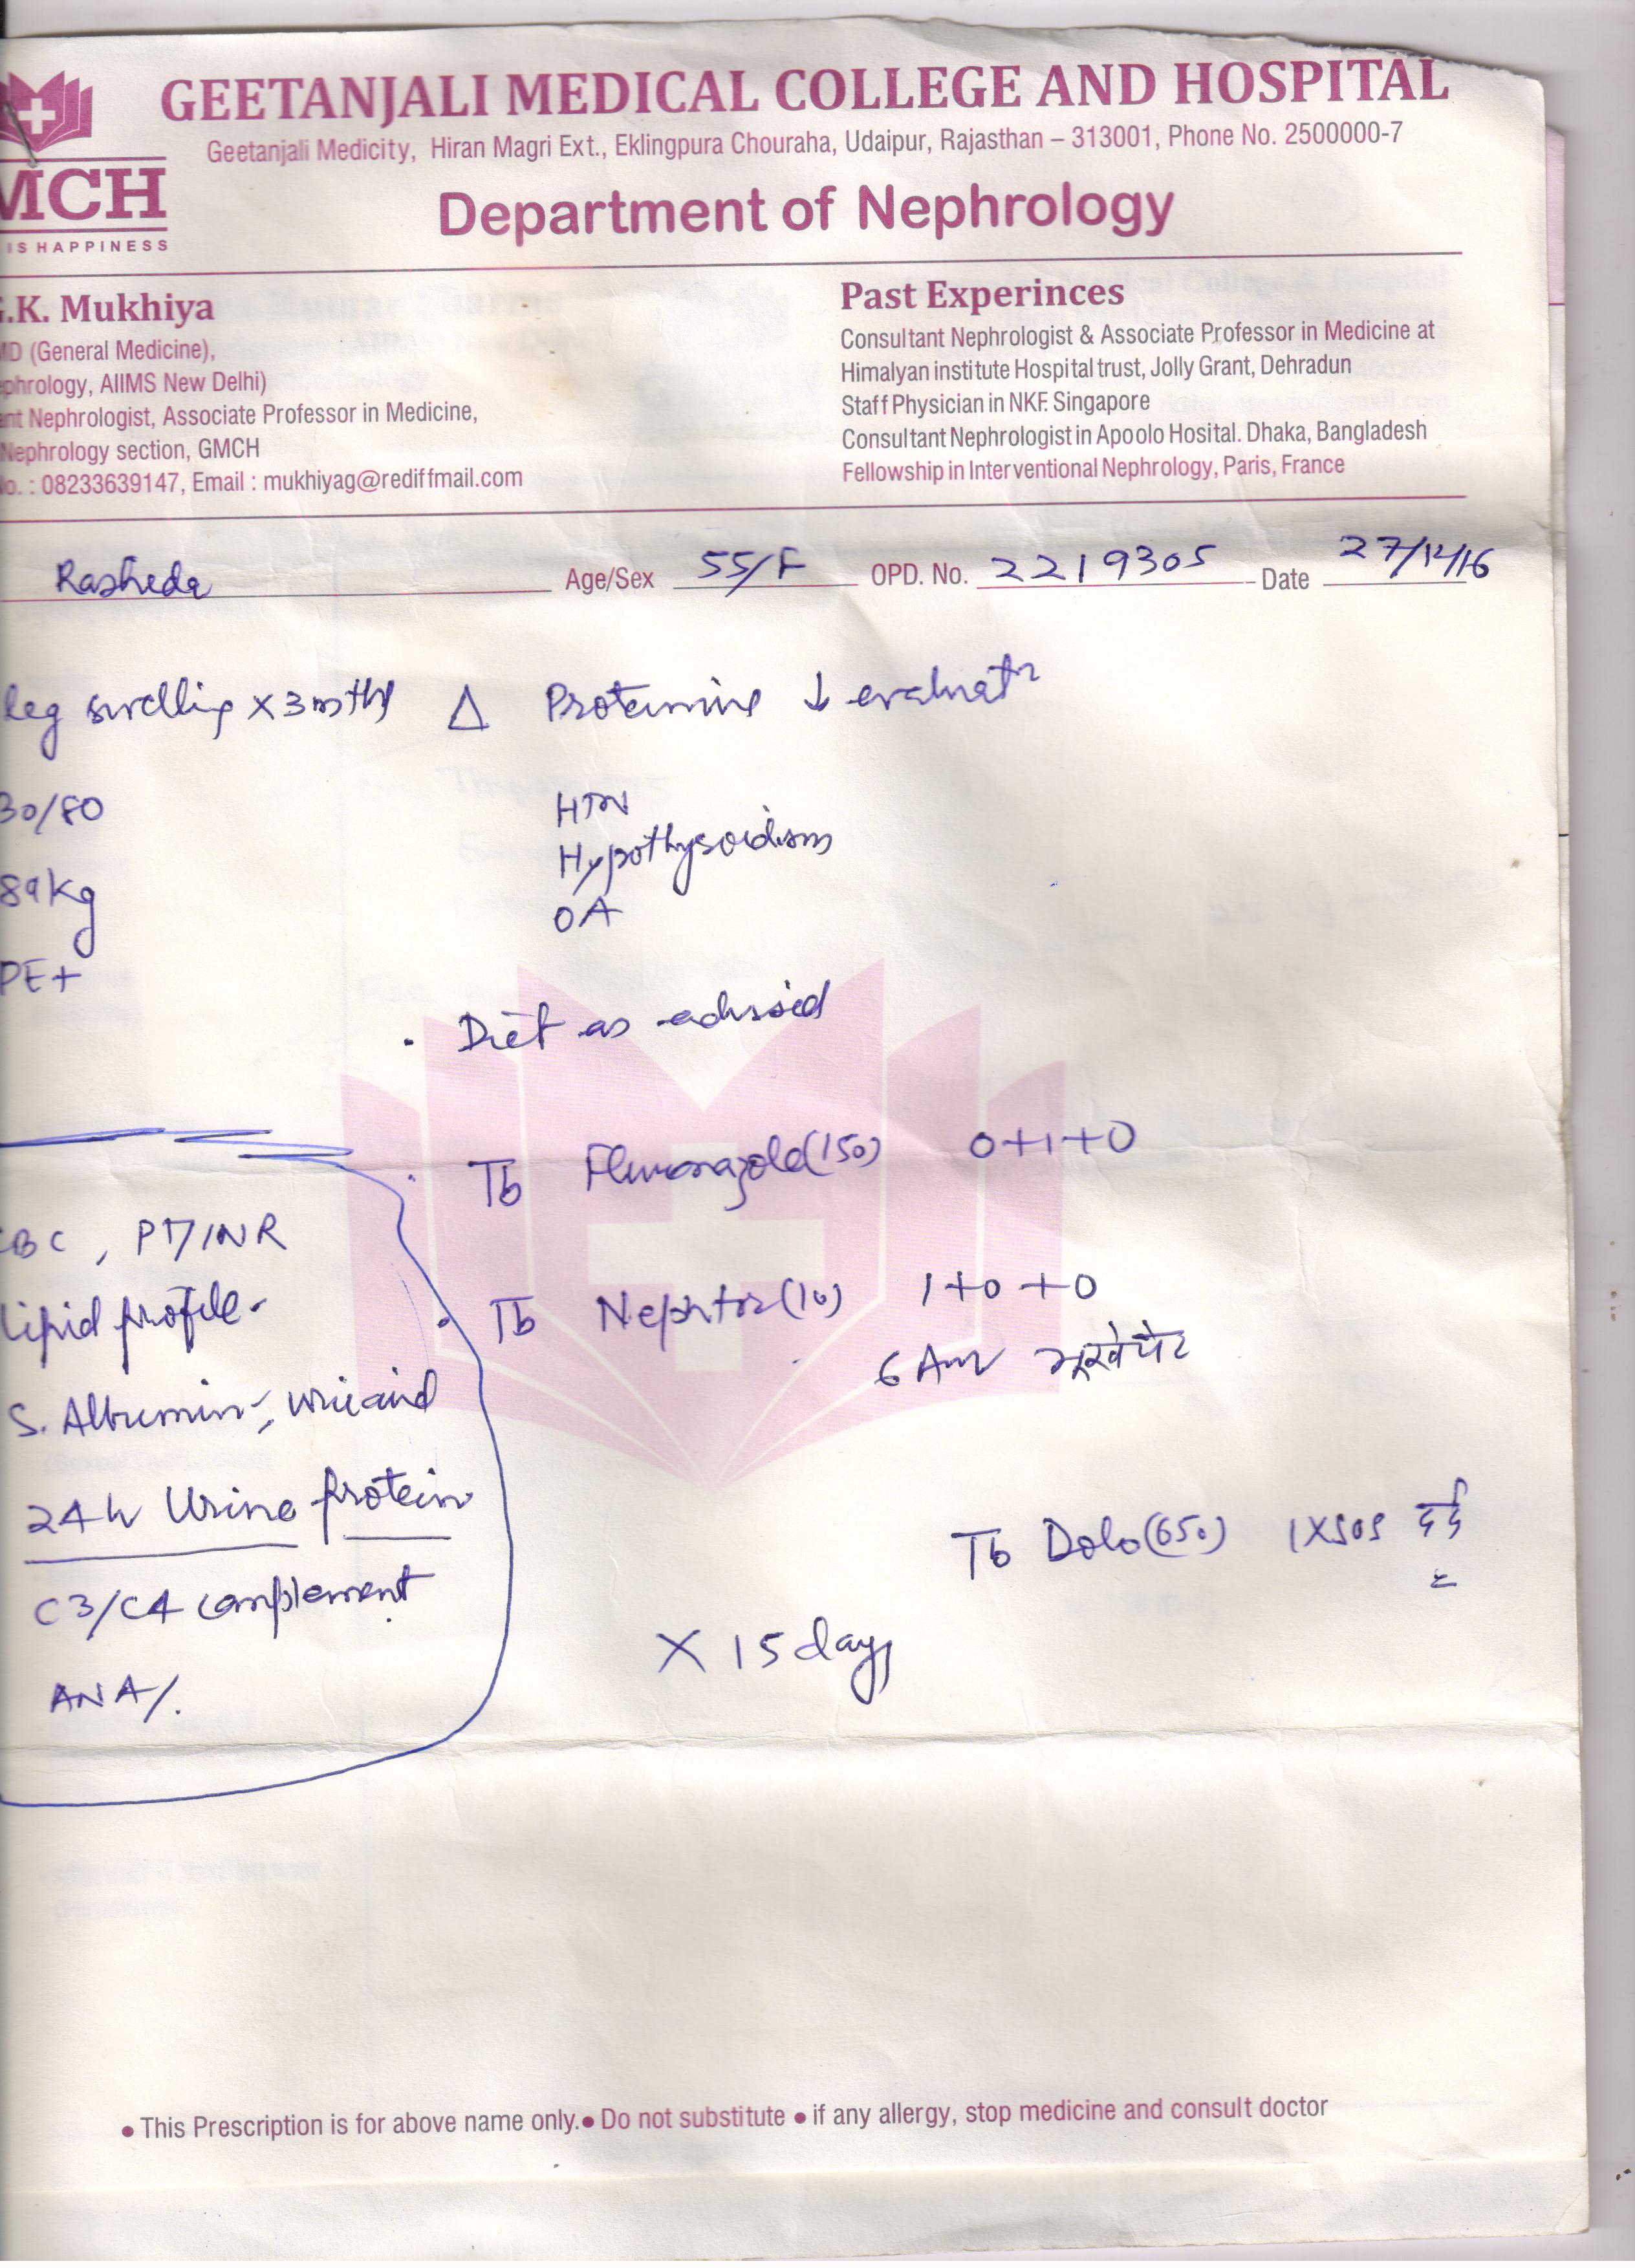 GEETANJALI MEDICAL COLLEGE AND HOSPITAL
Geetanjali Medicity, Hiran Magri Ext., Eklingpura Chouraha, Udaipur, Rajasthan – 313001, Phone No. 2500000-7
MCH
IS HAPPINESS
Department of Nephrology
.K. Mukhiya
MD (General Medicine),
ephrology, AIIMS New Delhi)
ant Nephrologist, Associate Professor in Medicine,
Nephrology section, GMCH
No. : 08233639147, Email : mukhiyag@rediffmail.com
Past Experinces
Consultant Nephrologist & Associate Professor in Medicine at
Himalyan institute Hospital trust, Jolly Grant, Dehradun
Staff Physician in NKF. Singapore
Consultant Nephrologist in Apoolo Hosital. Dhaka, Bangladesh
Fellowship in Interventional Nephrology, Paris, France
Rasheda Age/Sex 55/F OPD. No. 2219305 Date 27/12/16
leg swelling x 3 mths Δ ↓ evaluatn
30/80
HTN
Hypothyroidism
89kg
OA
PE+
. Diet as advised
. Tb (150) 0+1+0
BC, PT/INR
. Tb (10) 1+0+0
Lipid profile.
6 Am भूखे पेट
S. Albumin, uric acid
24h Urine protein
Tb Dolo (650) 1 x SOS दर्द
C3/C4 complement
X 15 days
ANA/.
• This Prescription is for above name only. • Do not substitute • if any allergy, stop medicine and consult doctor